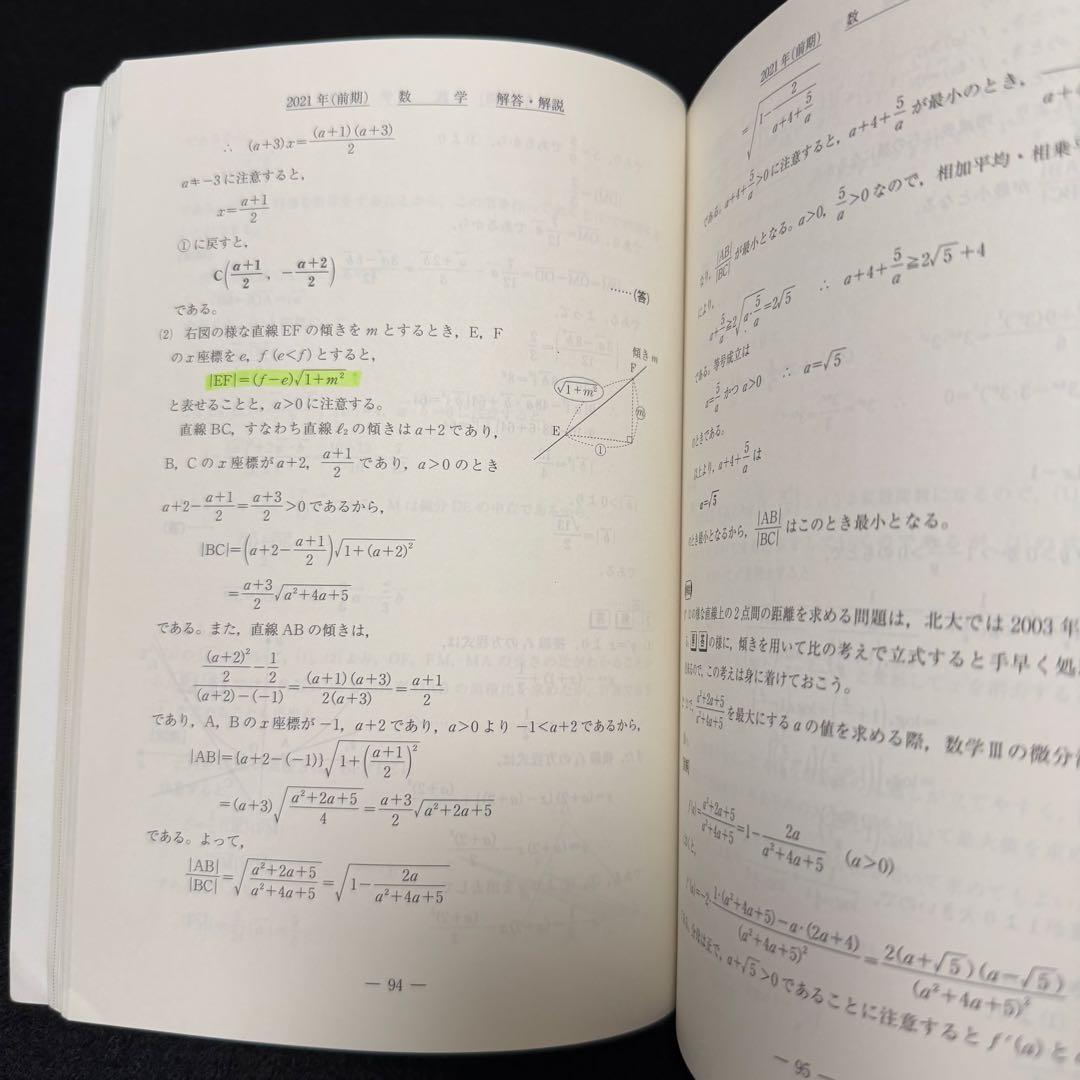 2021年(前期) 数 学 解答・解説
∴ (a+3)x=\frac{(a+1)(a+3)}{2}
a≠-3に注意すると，
x=\frac{a+1}{2}
①に戻すと，
C(\frac{a+1}{2}, -\frac{a+2}{2}) ……(答)
である。
(2) 右図の様な直線EFの傾きをmとするとき，E，F
のx座標をe，f (e<f)とすると，
|EF|=(f-e)\sqrt{1+m²}
と表せることと，a>0に注意する。
直線BC，すなわち直線ℓ₂の傾きはa+2であり，
B，Cのx座標がa+2，\frac{a+1}{2}であり，a>0のとき
傾きm
F
\sqrt{1+m²}
m
E
①
a+2-\frac{a+1}{2}=\frac{a+3}{2}>0であるから，
|BC|=(a+2-\frac{a+1}{2})\sqrt{1+(a+2)²}
=\frac{a+3}{2}\sqrt{a²+4a+5}
である。また，直線ABの傾きは，
\frac{\frac{(a+2)²}{2}-\frac{1}{2}}{(a+2)-(-1)}=\frac{(a+1)(a+3)}{2(a+3)}=\frac{a+1}{2}
であり，A，Bのx座標が-1，a+2であり，a>0より-1<a+2であるから，
|AB|={a+2-(-1)}\sqrt{1+(\frac{a+1}{2})²}
=(a+3)\sqrt{\frac{a²+2a+5}{4}}=\frac{a+3}{2}\sqrt{a²+2a+5}
である。よって，
\frac{|AB|}{|BC|}=\sqrt{\frac{a²+2a+5}{a²+4a+5}}=\sqrt{1-\frac{2a}{a²+4a+5}}
― 94 ―
2021年(前期) 数
=\sqrt{1-\frac{2}{a+4+\frac{5}{a}}}
である。a+4+\frac{5}{a}>0に注意すると，a+4+\frac{5}{a}が最小のとき，
なり，\frac{|AB|}{|BC|}が最小となる。a>0，\frac{5}{a}>0なので，相加平均・相乗平
により，
a+\frac{5}{a}≧2\sqrt{a・\frac{5}{a}}=2\sqrt{5} ∴ a+4+\frac{5}{a}≧2\sqrt{5}+4
である。等号成立は
a=\frac{5}{a}かつa>0 ∴ a=\sqrt{5}
のときである。
以上より，a+4+\frac{5}{a}は
a=\sqrt{5}
のとき最小となるから，\frac{|AB|}{|BC|}はこのとき最小となる。
様な直線上の2点間の距離を求める問題は，北大では2003年
の様に，傾きを用いて比の考えで立式すると手早く処
ので，この考えは身に着けておこう。
\frac{a²+2a+5}{a²+4a+5}を最大にするaの値を求める際，数学Ⅲの微分
f(a)=\frac{a²+2a+5}{a²+4a+5}=1-\frac{2a}{a²+4a+5} (a>0)
f'(a)=-2・\frac{1・(a²+4a+5)-a・(2a+4)}{(a²+4a+5)²}=\frac{2(a+\sqrt{5})(a-\sqrt{5})}{(a²+4a+5)²}
分母は正で，a+\sqrt{5}>0であることに注意するとf'(a)と
― 95 ―